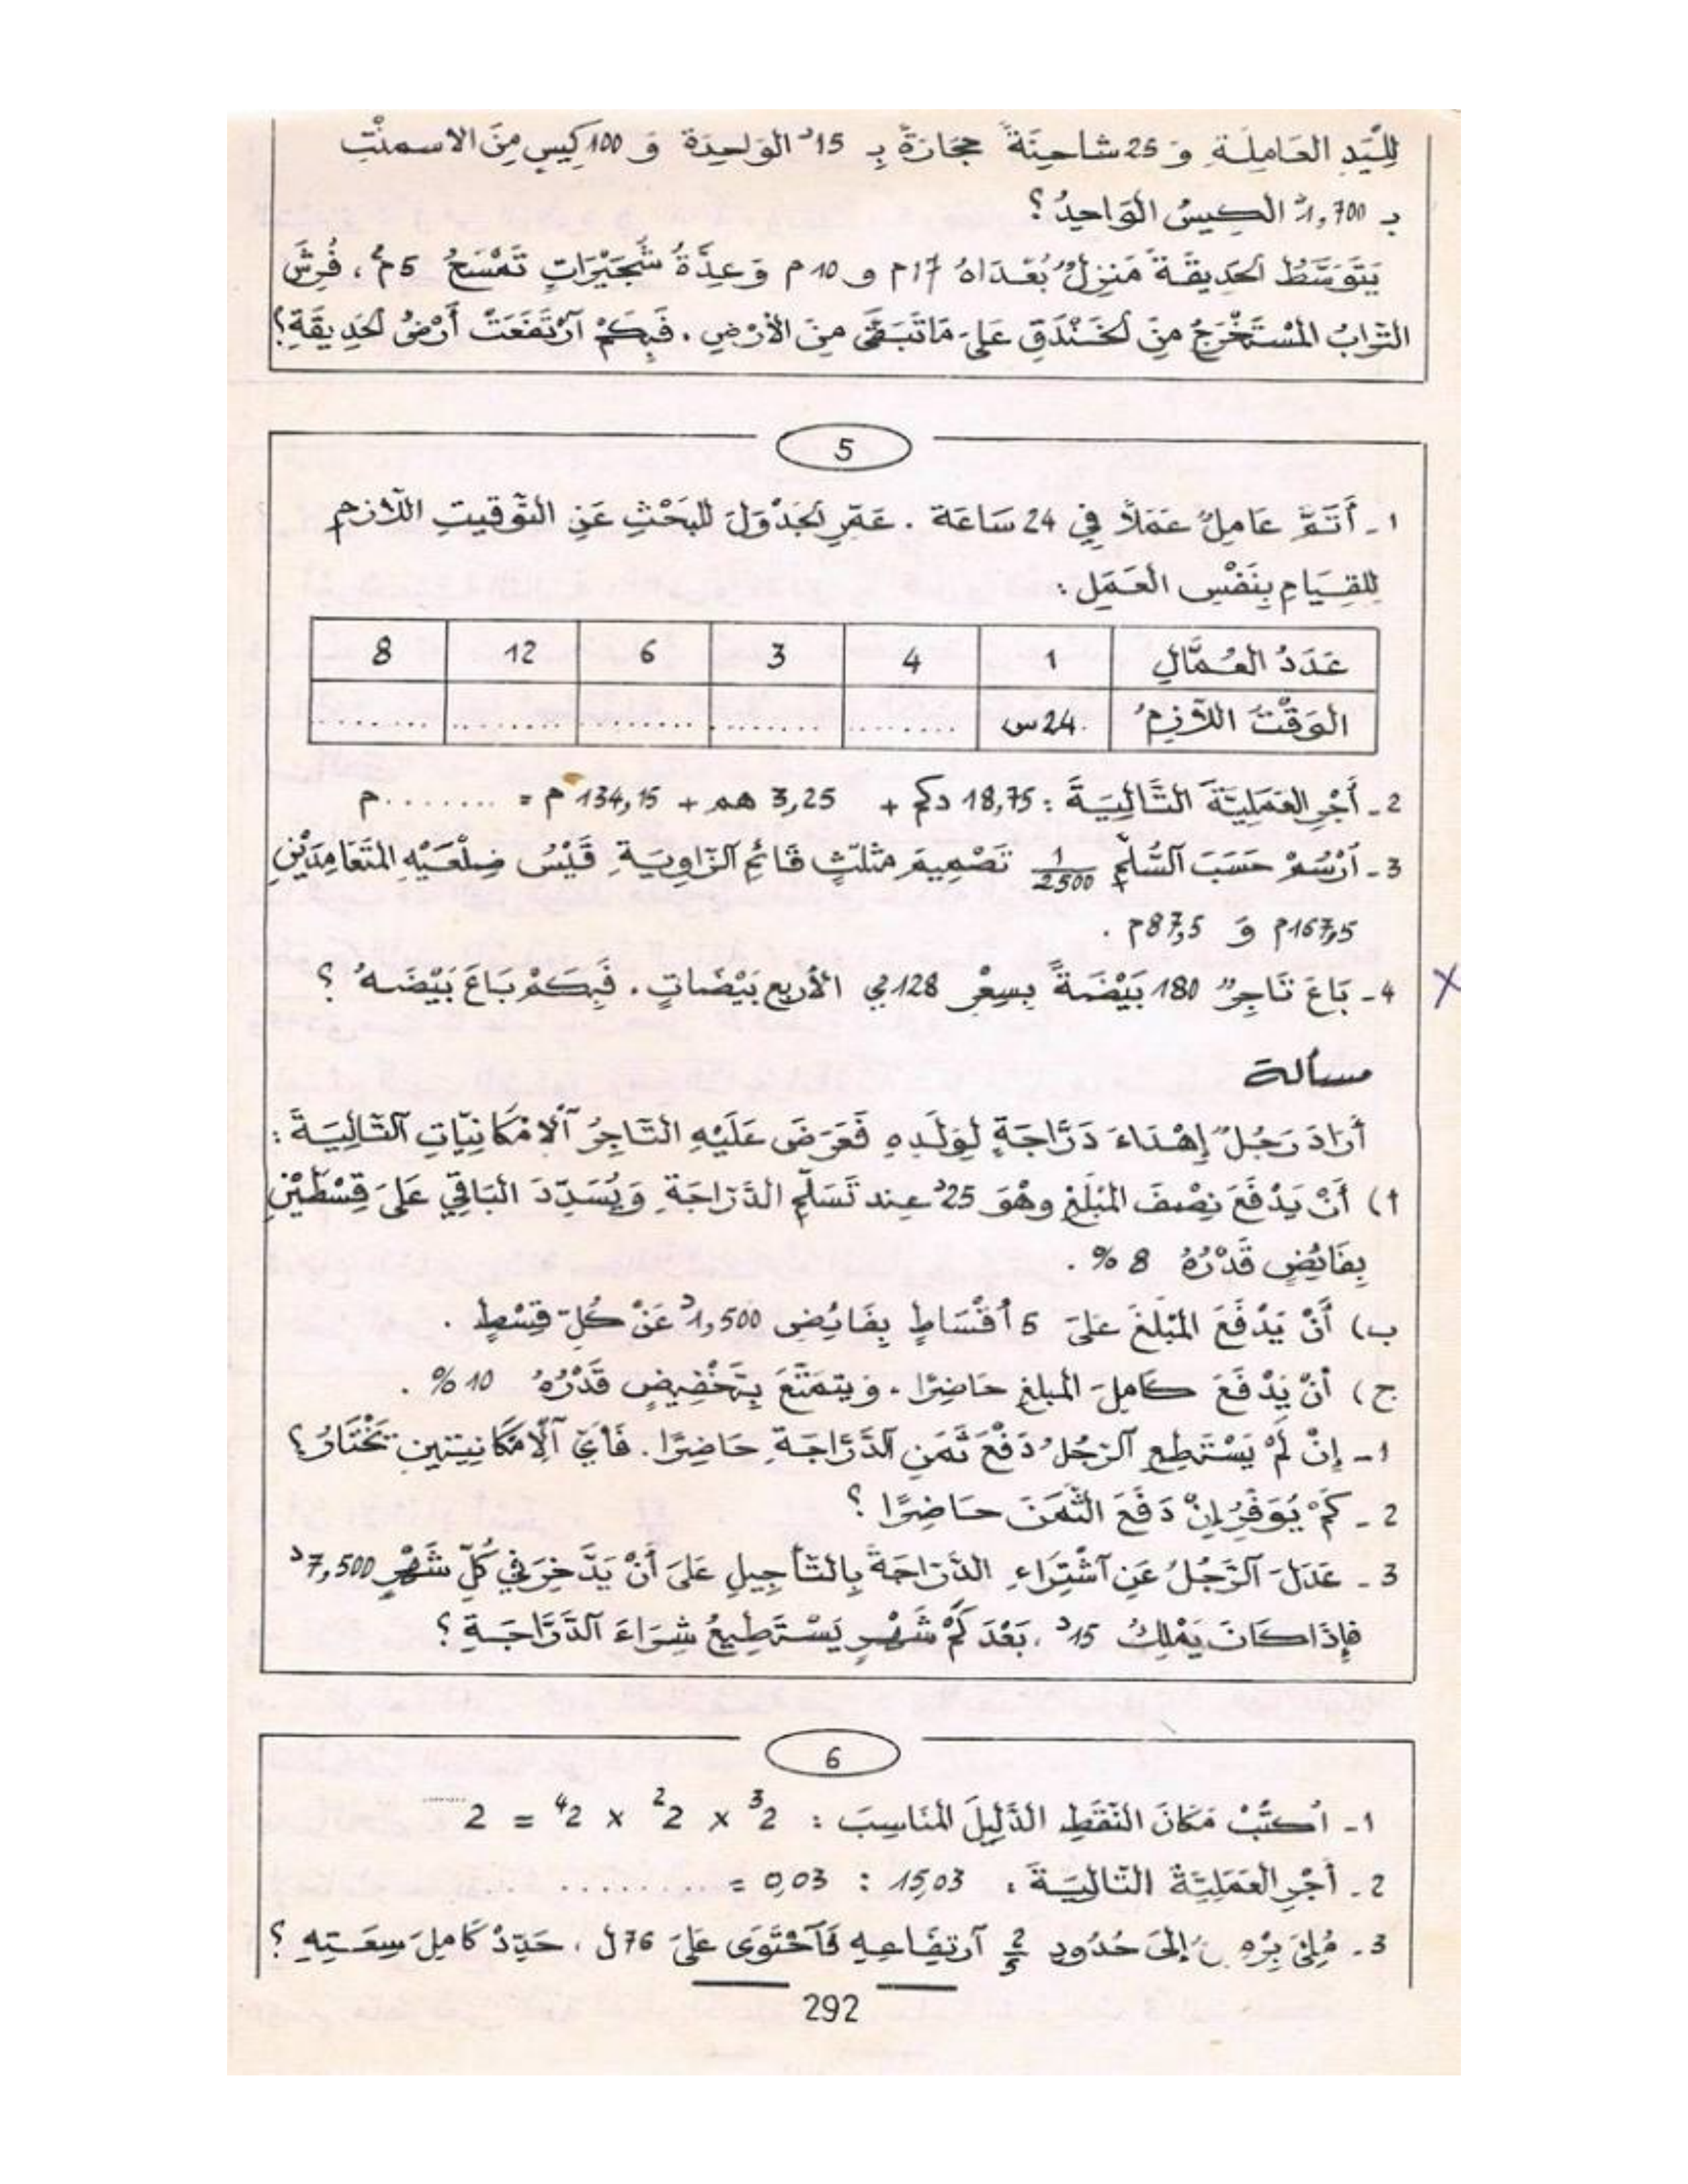 لِلْيَدِ العَامِلَةِ وَ 25 شَاحِنَةً حِجَارَةً بِـ 15د الوَاحِدَةَ وَ 100 كِيسٍ مِنَ الاسمنْتِ
بـ 1,700د الكِيسُ الوَاحِدُ؟
يَتَوَسَّطُ الحَدِيقَةَ مَنزِلٌ بُعْدَاهُ 17م و 10م وَعِدَّةُ شُجَيْرَاتٍ تَمْسَحُ 5م²، فُرِشَ
التُّرَابُ المُسْتَخْرَجُ مِنَ الخَنْدَقِ عَلَى مَا تَبَقَّى مِنَ الأَرْضِ. فَبِكَمْ آرْتَفَعَتْ أَرْضُ الحَدِيقَةِ؟
5
1 - أَتَمَّ عَامِلٌ عَمَلاً فِي 24 سَاعَة. عَمِّرِ الجَدْوَلَ لِلبَحْثِ عَنِ التَّوْقِيتِ اللاَّزِمِ
لِلقِيَامِ بِنَفْسِ العَمَلِ:
عَدَدُ العُمَّالِ 1 4 3 6 12 8
الوَقْتُ اللاَّزِمُ 24س ........ ........ ........ ........ ........
2 - أَجْرِ العَمَلِيَّةَ التَّالِيَةَ: 18,75 دكم + 3,25 هم + 134,15 م = ........ م
3 - اُرْسُمْ حَسَبَ السُّلَّمِ 1/2500 تَصْمِيمَ مُثلّثٍ قَائِمِ الزّاوِيَةِ قَيْسُ ضِلْعَيْهِ المُتَعَامِدَيْنِ
167,5م وَ 87,5م.
4 - بَاعَ تَاجِرٌ 180 بَيْضَةً بِسِعْرِ 128مي الأَرْبَعِ بَيْضَاتٍ. فَبِكَمْ بَاعَ بَيْضَهُ؟
مسألة
أَرَادَ رَجُلٌ إِهْدَاءَ دَرَّاجَةٍ لِوَلَدِهِ فَعَرَضَ عَلَيْهِ التَّاجِرُ آلإمْكَانِيَّاتِ آلتَّالِيَةَ:
أ) أَنْ يَدْفَعَ نِصْفَ المَبْلَغِ وهْوَ 25د عِند تَسَلُّمِ الدَّرَّاجَةِ وَيُسَدِّدَ البَاقِي عَلَى قِسْطَيْنِ
بِفَائِضٍ قَدْرُهُ 8 %.
ب) أَنْ يَدْفَعَ المَبْلَغَ عَلَى 5 أَقْسَاطٍ بِفَائِضِ 1,500د عَنْ كُلِّ قِسْطٍ.
ج) أَنْ يَدْفَعَ كَامِلَ المبلغِ حَاضِرًا. وَيتمَتَّعَ بِتَخْفِيضٍ قَدْرُهُ 10 %.
1 - إِنْ لَمْ يَسْتَطِعِ آلرَّجُلُ دَفْعَ ثَمَنِ آلدَّرَّاجَةِ حَاضِرًا. فَأَيَّ آلإمْكَانِيَّتَيْنِ تَخْتَارُ؟
2 - كَمْ يُوَفِّرُ إِنْ دَفَعَ الثَّمَنَ حَاضِرًا؟
3 - عَدَلَ آلرَّجُلُ عَنِ آشْتِرَاءِ الدَّرَّاجَةِ بِالتَّأْجِيلِ عَلَى أَنْ يَدَّخِرَ فِي كُلِّ شَهْرٍ 7,500د
فإِذَا كَانَ يَمْلِكُ 15د، بَعْدَ كَمْ شَهْرٍ يَسْتَطِيعُ شِرَاءَ آلدَّرَّاجَةِ؟
6
1 - اُكتُبْ مَكَانَ النُّقَطِ الدَّلِيلَ المُنَاسِبَ: 2³ × 2² × 2⁴ = 2 ......
2 - أَجْرِ العَمَلِيَّةَ التَّالِيَةَ: 15,03 : 0,03 = ..............
3 - مُلِئَ بِرْمِ إلَى حُدُودِ 2/5 آرتِفَاعِهِ فَآحْتَوَى عَلَى 76ل، حَدِّدْ كَامِلَ سِعَتِهِ؟
292